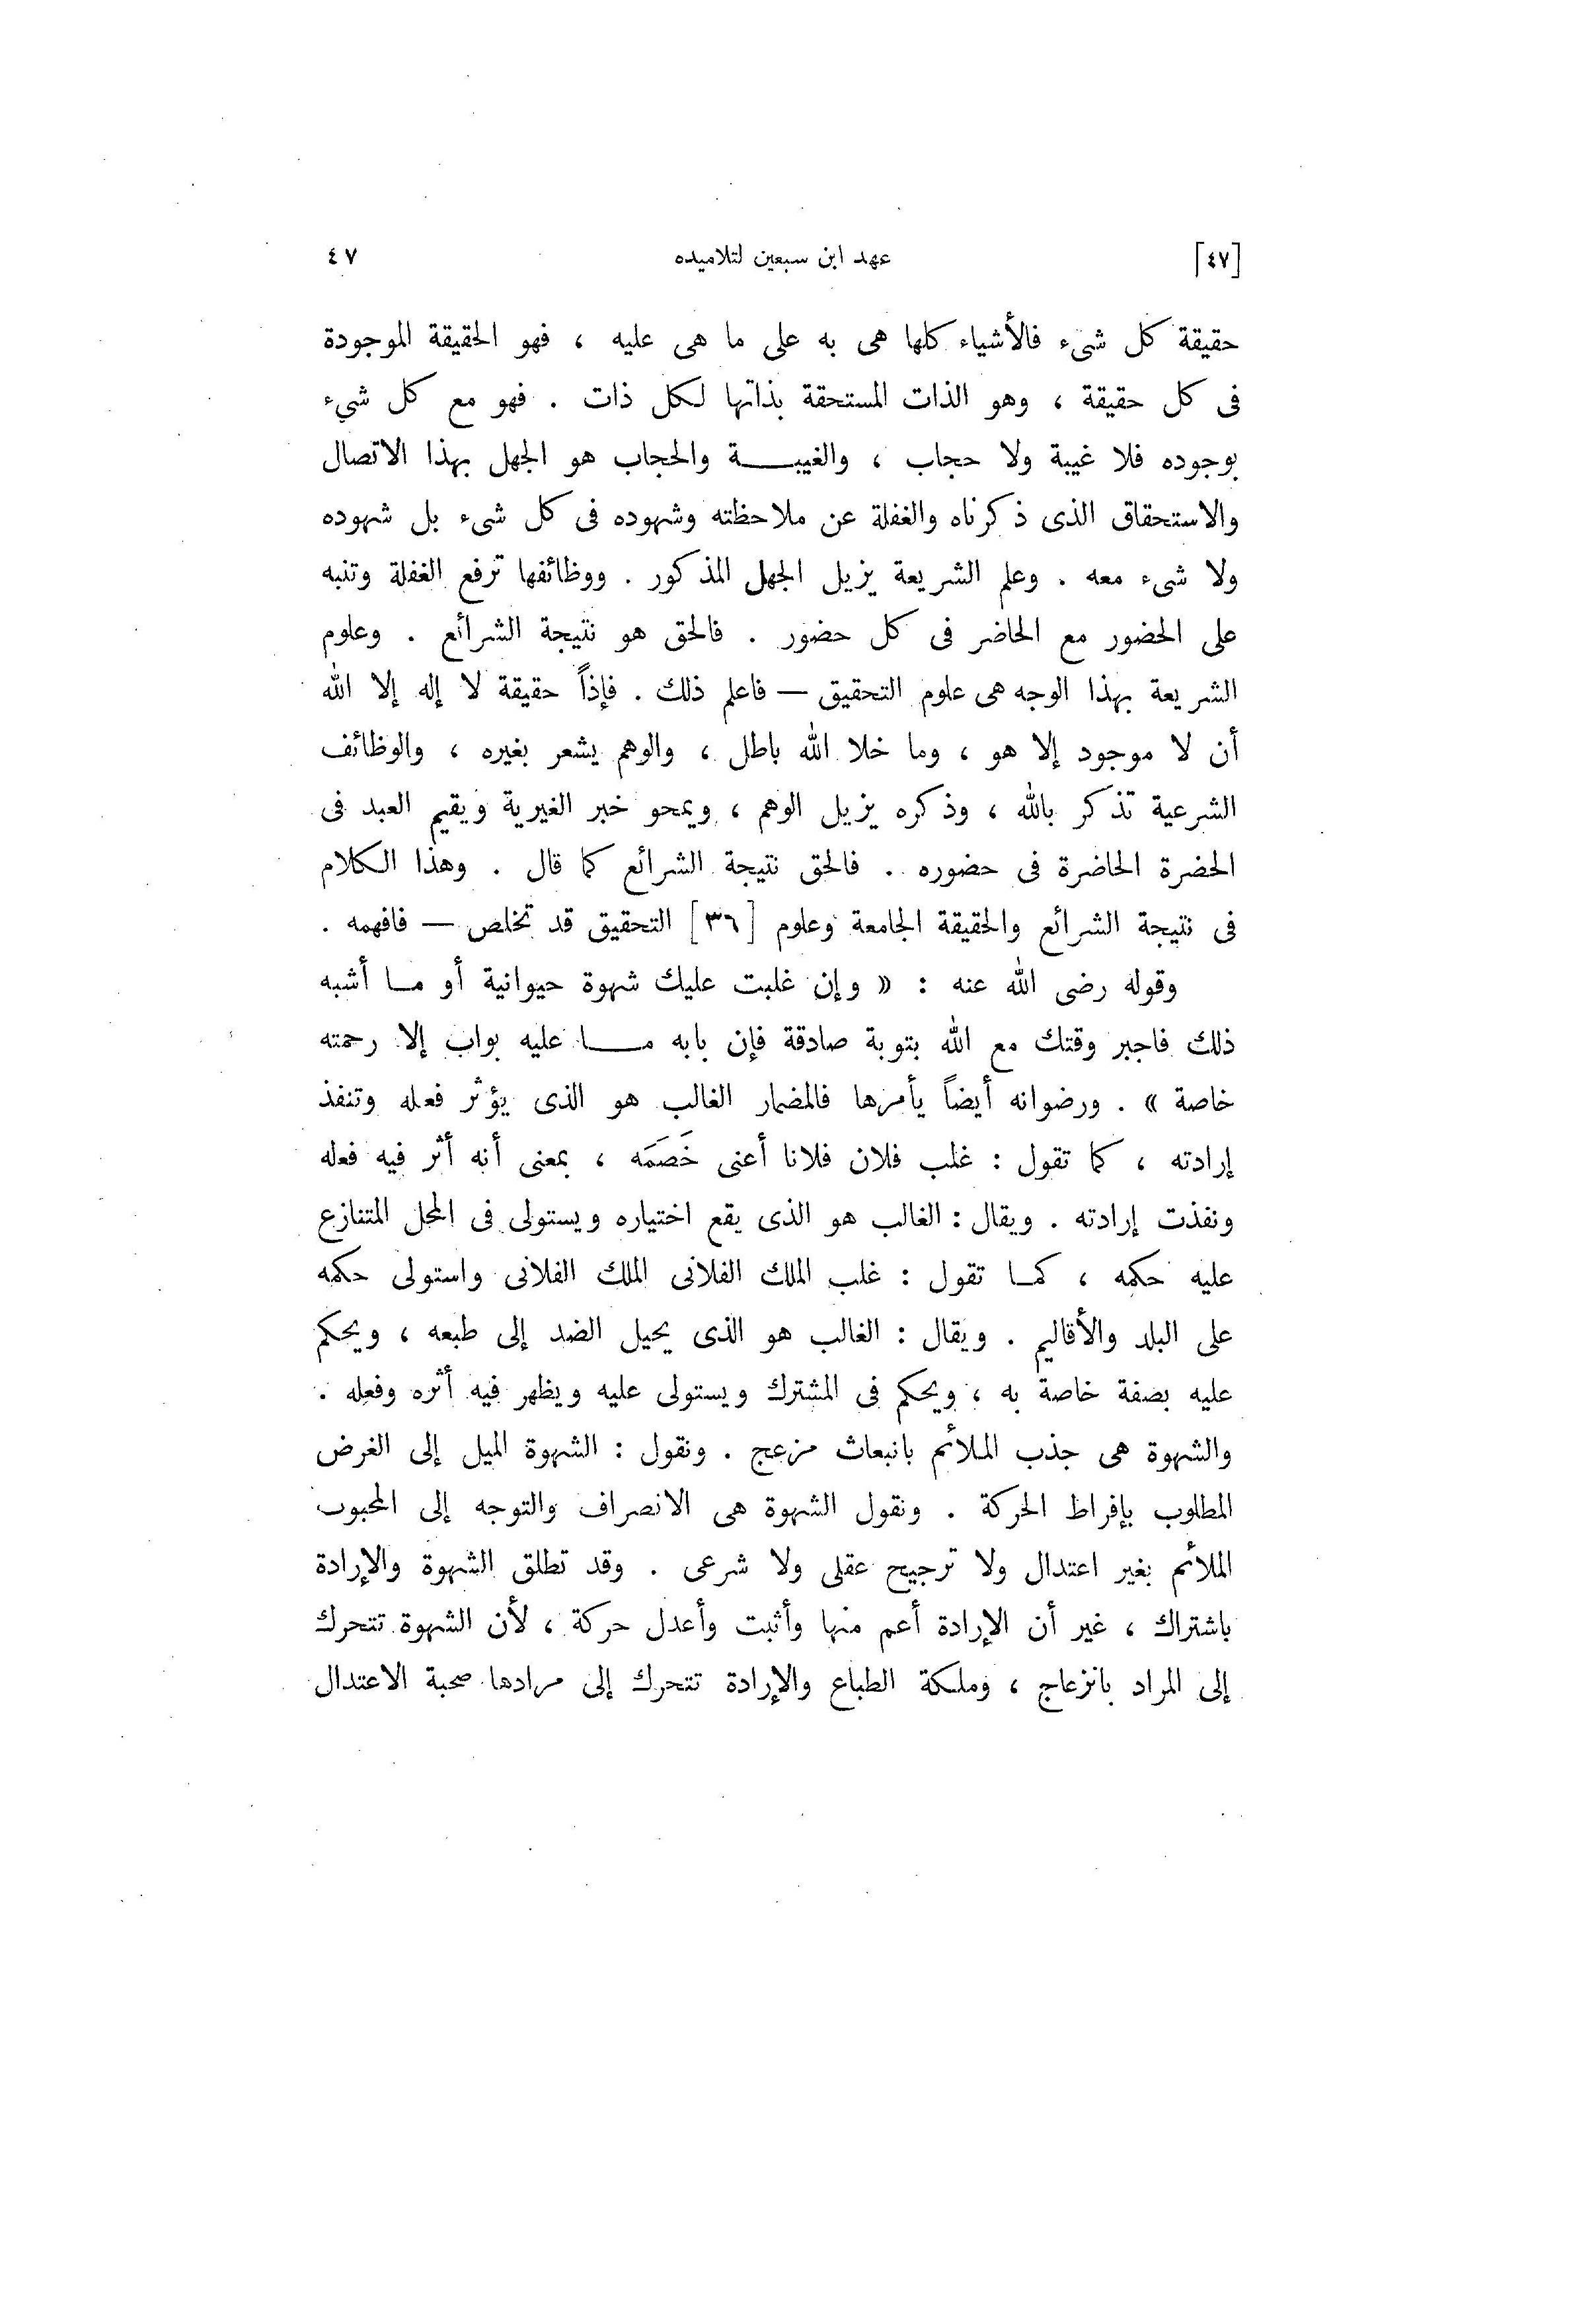 [٤٧] عهد ابن سبعين لتلاميذه ٤٧
حقيقة كل شىء فالأشياء كلها هى به على ما هى عليه ، فهو الحقيقة الموجودة
فى كل حقيقة ، وهو الذات المستحقة بذاتها لكل ذات . فهو مع كل شيء
بوجوده فلا غيبة ولا حجاب ، والغيبـــة والحجاب هو الجهل بهذا الاتصال
والاستحقاق الذى ذكرناه والغفلة عن ملاحظته وشهوده فى كل شىء بل شهوده
ولا شىء معه . وعلم الشريعة يزيل الجهل المذكور . ووظائفها ترفع الغفلة وتنبه
على الحضور مع الحاضر فى كل حضور . فالحق هو نتيجة الشرائع . وعلوم
الشريعة بهذا الوجه هى علوم التحقيق — فاعلم ذلك . فإذاً حقيقة لا إله إلا الله
أن لا موجود إلا هو ، وما خلا الله باطل ، والوهم يشعر بغيره ، والوظائف
الشرعية تذكر بالله ، وذكره يزيل الوهم ، ويمحو خبر الغيرية ويقيم العبد فى
الحضرة الحاضرة فى حضوره . فالحق نتيجة الشرائع كما قال . وهذا الكلام
فى نتيجة الشرائع والحقيقة الجامعة وعلوم [٣٦] التحقيق قد تخلص — فافهمه .
وقوله رضى الله عنه : « وإن غلبت عليك شهوة حيوانية أو مـا أشبه
ذلك فاجبر وقتك مع الله بتوبة صادقة فإن بابه مـــا عليه بواب إلا رحمته
خاصة » . ورضوانه أيضاً يأمرها فالمضمار الغالب هو الذى يؤثر فعله وتنفذ
إرادته ، كما تقول : غلب فلان فلانا أعنى خَصَمَه ، بمعنى أنه أثر فيه فعله
ونفذت إرادته . ويقال : الغالب هو الذى يقع اختياره ويستولى فى المحل المتنازع
عليه حكمه ، كمـا تقول : غلب الملك الفلانى الملك الفلانى واستولى حكمه
على البلد والأقاليم . ويقال : الغالب هو الذى يحيل الضد إلى طبعه ، ويحكم
عليه بصفة خاصة به ، ويحكم فى المشترك ويستولى عليه ويظهر فيه أثره وفعله .
والشهوة هى جذب الملائم بانبعاث مزعج . ونقول : الشهوة الميل إلى الغرض
المطلوب بإفراط الحركة . ونقول الشهوة هى الانصراف والتوجه إلى المحبوب
الملائم بغير اعتدال ولا ترجيح عقلى ولا شرعى . وقد تطلق الشهوة والإرادة
باشتراك ، غير أن الإرادة أعم منها وأثبت وأعدل حركة ، لأن الشهوة تتحرك
إلى المراد بانزعاج ، وملكة الطباع والإرادة تتحرك إلى مرادها صحبة الاعتدال